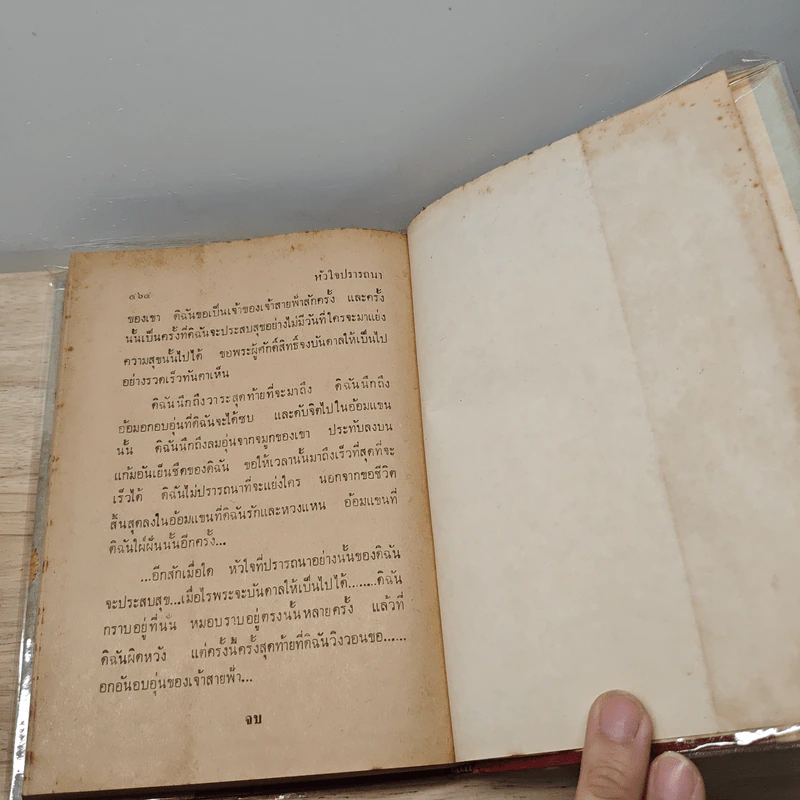 หัวใจปรารถนา
๓๖๔
ของเขา ดิฉันขอเป็นเจ้าของเจ้าสายฟ้าสักครั้ง และครั้ง
นั้นเป็นครั้งที่ดิฉันจะประสบสุขอย่างไม่มีวันที่ใครจะมาแย่ง
ความสุขนั้นไปได้ ขอพระผู้ศักดิ์สิทธิ์จงบันดาลให้เป็นไป
อย่างรวดเร็วทันตาเห็น
ดิฉันนึกถึงวาระสุดท้ายที่จะมาถึง ดิฉันนึกถึง
อ้อมอกอบอุ่นที่ดิฉันจะได้ซบ และดับจิตไปในอ้อมแขน
นั้น ดิฉันนึกถึงลมอุ่นจากจมูกของเขา ประทับลงบน
แก้มอันเย็นชืดของดิฉัน ขอให้เวลานั้นมาถึงเร็วที่สุดที่จะ
เร็วได้ ดิฉันไม่ปรารถนาที่จะแย่งใคร นอกจากขอชีวิต
สิ้นสุดลงในอ้อมแขนที่ดิฉันรักและหวงแหน อ้อมแขนที่
ดิฉันใฝ่ฝันนั้นอีกครั้ง...
...อีกสักเมื่อใด หัวใจที่ปรารถนาอย่างนั้นของดิฉัน
จะประสบสุข...เมื่อไรพระจะบันดาลให้เป็นไปได้........ดิฉัน
กราบอยู่ที่นั่น หมอบราบอยู่ตรงนั้นหลายครั้ง แล้วที่
ดิฉันผิดหวัง แต่ครั้งนี้ครั้งสุดท้ายที่ดิฉันวิงวอนขอ......
อกอันอบอุ่นของเจ้าสายฟ้า...
จบ